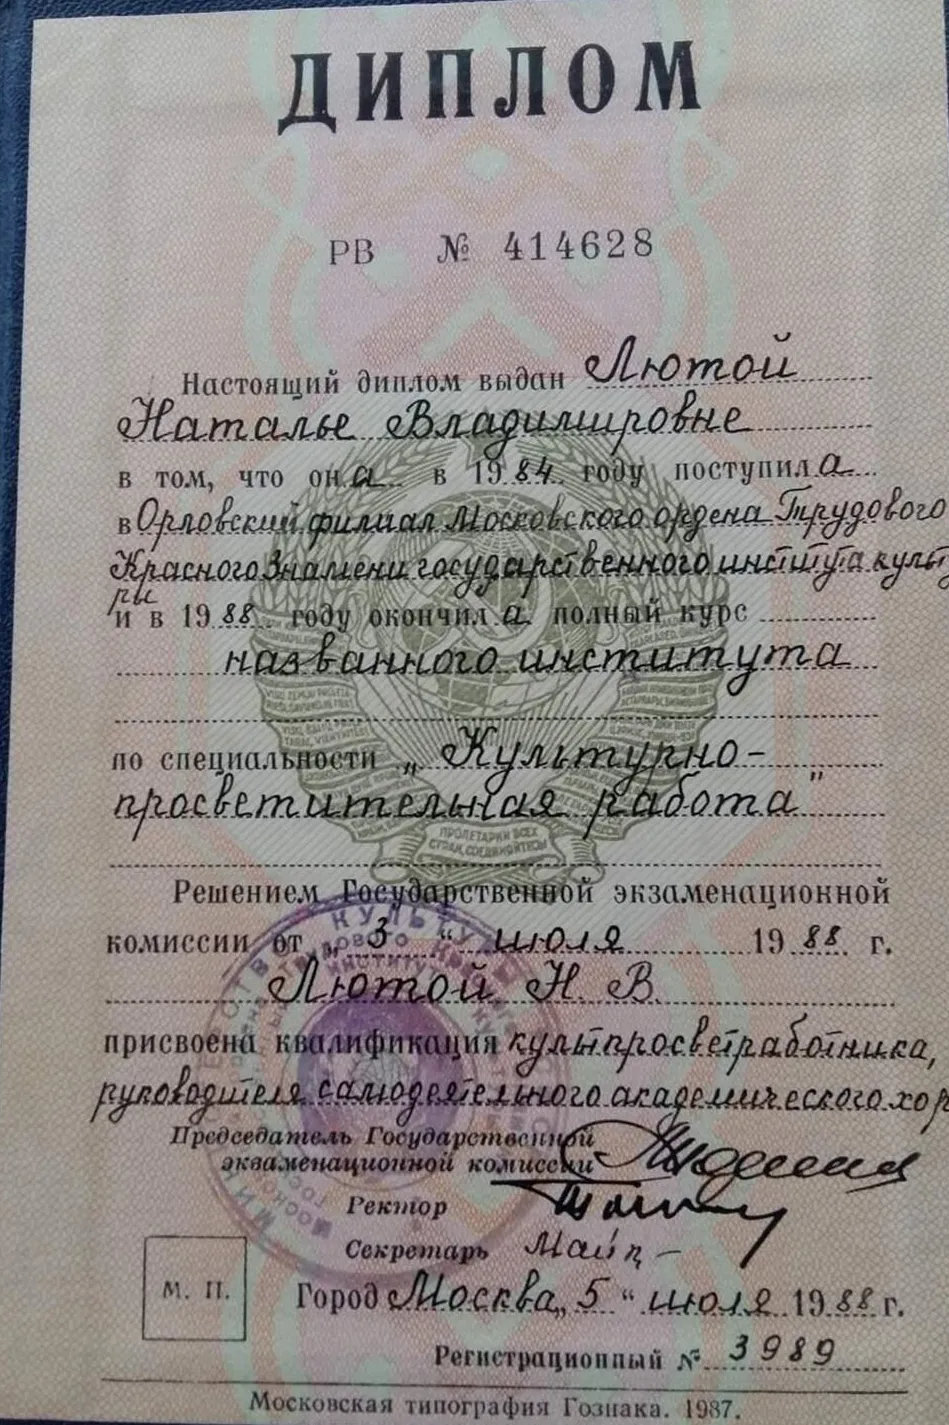 ДИПЛОМ
РВ № 414628
Настоящий диплом выдан Лютой
Наталье Владимировне
в том, что она в 1984 году поступила
в Орловский филиал Московского ордена Трудового
Красного Знамени государственного института культу
ры
и в 1988 году окончила полный курс
названного института
по специальности „Культурно-
просветительная работа"
Решением Государственной экзаменационной
комиссии от „3" июля 1988 г.
Лютой Н. В.
присвоена квалификация культпросветработника,
руководителя самодеятельного академического хор
Председатель Государственной
экзаменационной комиссии
Ректор
Секретарь
М. П.
Город Москва, „5" июля 1988 г.
Регистрационный № 3989
Московская типография Гознака. 1987.